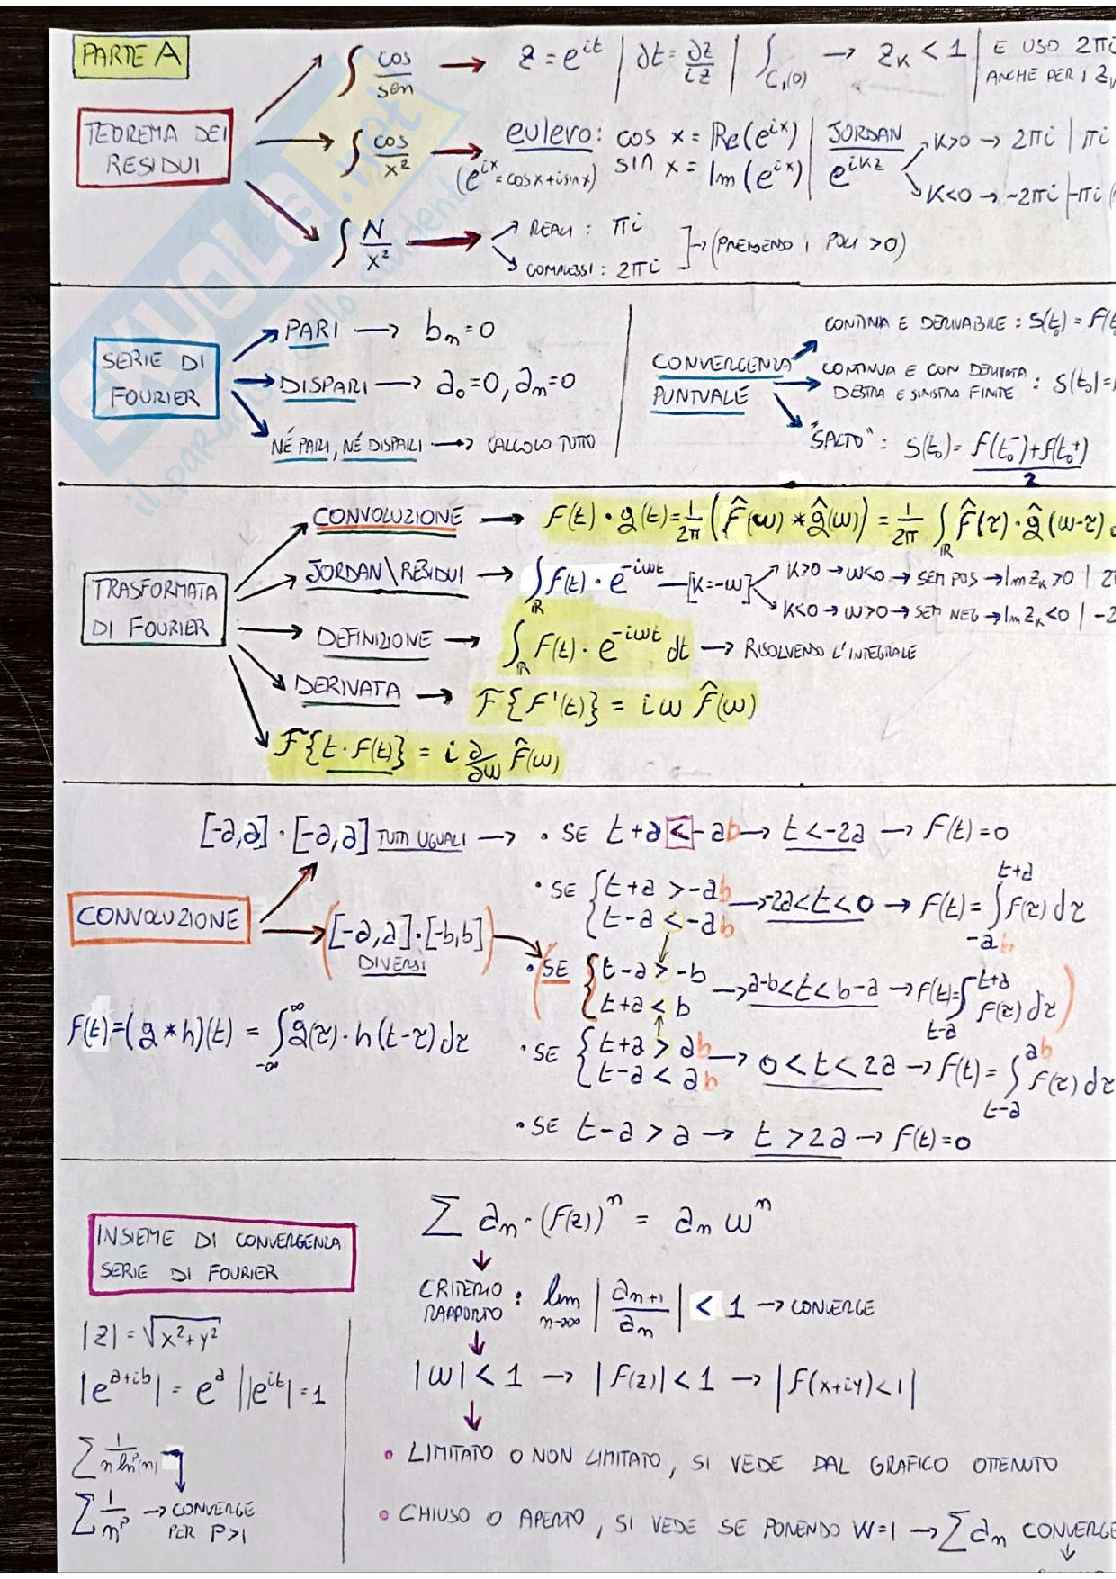 PARTE A
TEOREMA DEI RESIDUI
∫ cos/sen → z = e^{it} | ∂t = ∂z/iz | ∫_{C_1(0)} → z_k < 1 | E USO 2πi ANCHE PER I
∫ cos/x² → eulero: cos x = Re(e^{ix}) | JORDAN K>0 → 2πi | πi
(e^{ix} = cosx+isinx) sin x = Im(e^{ix}) | e^{ikz} K<0 → -2πi | -πi
∫ N/x² → REALI : πi
COMPLESSI : 2πi ] → (PRENDENDO I POLI >0)
SERIE DI FOURIER
PARI → b_n = 0
DISPARI → a_0 = 0, a_n = 0
NÉ PARI, NÉ DISPARI → CALCOLO TUTTO
CONVERGENZA PUNTUALE
CONTINUA E DERIVABILE : S(t_0) = f(t
CONTINUA E CON DERIVATA DESTRA E SINISTRA FINITE : S(t_0) =
"SALTO" : S(t_0) = f(t_0^-) + f(t_0^+) / 2
TRASFORMATA DI FOURIER
CONVOLUZIONE → f(t) · g(t) = 1/2π (f̂(ω) * ĝ(ω)) = 1/2π ∫_ℝ f̂(τ) · ĝ(ω-τ)
JORDAN\RESIDUI → ∫_ℝ f(t) · e^{-iωt} → [K=-ω] K>0 → ω<0 → SEM POS → Im z_k >0 |
K<0 → ω>0 → SEM NEG → Im z_k <0 | -2
DEFINIZIONE → ∫_ℝ f(t) · e^{-iωt} dt → RISOLVENDO L'INTEGRALE
DERIVATA → F{f'(t)} = iω f̂(ω)
F{t · f(t)} = i ∂/∂ω f̂(ω)
[-a,a] · [-a,a] TUTTI UGUALI → • SE t+a < -a b → t < -2a → f(t) = 0
• SE { t+a > -a b
t-a < -a b → -2a < t < 0 → f(t) = ∫_{-a b}^{t+a} f(τ) dτ
CONVOLUZIONE
([-a,a] · [-b,b]) DIVERSI
( • SE { t-a > -b
t+a < b → a-b < t < b-a → f(t) = ∫_{t-a}^{t+a} f(τ) dτ )
f(t) = (g * h)(t) = ∫_{-∞}^{∞} g(τ) · h(t-τ) dτ
• SE { t+a > a b
t-a < a b → 0 < t < 2a → f(t) = ∫_{t-a}^{a b} f(τ) dτ
• SE t-a > a → t > 2a → f(t) = 0
INSIEME DI CONVERGENZA
SERIE DI FOURIER
|z| = √(x²+y²)
|e^{a+ib}| = e^a | |e^{it}| = 1
∑ 1/(n ln^p n)
∑ 1/n^p → CONVERGE PER P>1
∑ a_n · (f(z))^n = a_n ω^n
CRITERIO RAPPORTO : lim_{n→∞} | a_{n+1}/a_n | < 1 → CONVERGE
|ω| < 1 → |f(z)| < 1 → |f(x+iy) < 1|
• LIMITATO O NON LIMITATO, SI VEDE DAL GRAFICO OTTENUTO
• CHIUSO O APERTO, SI VEDE SE PONENDO W=1 → ∑ a_n CONVERGE